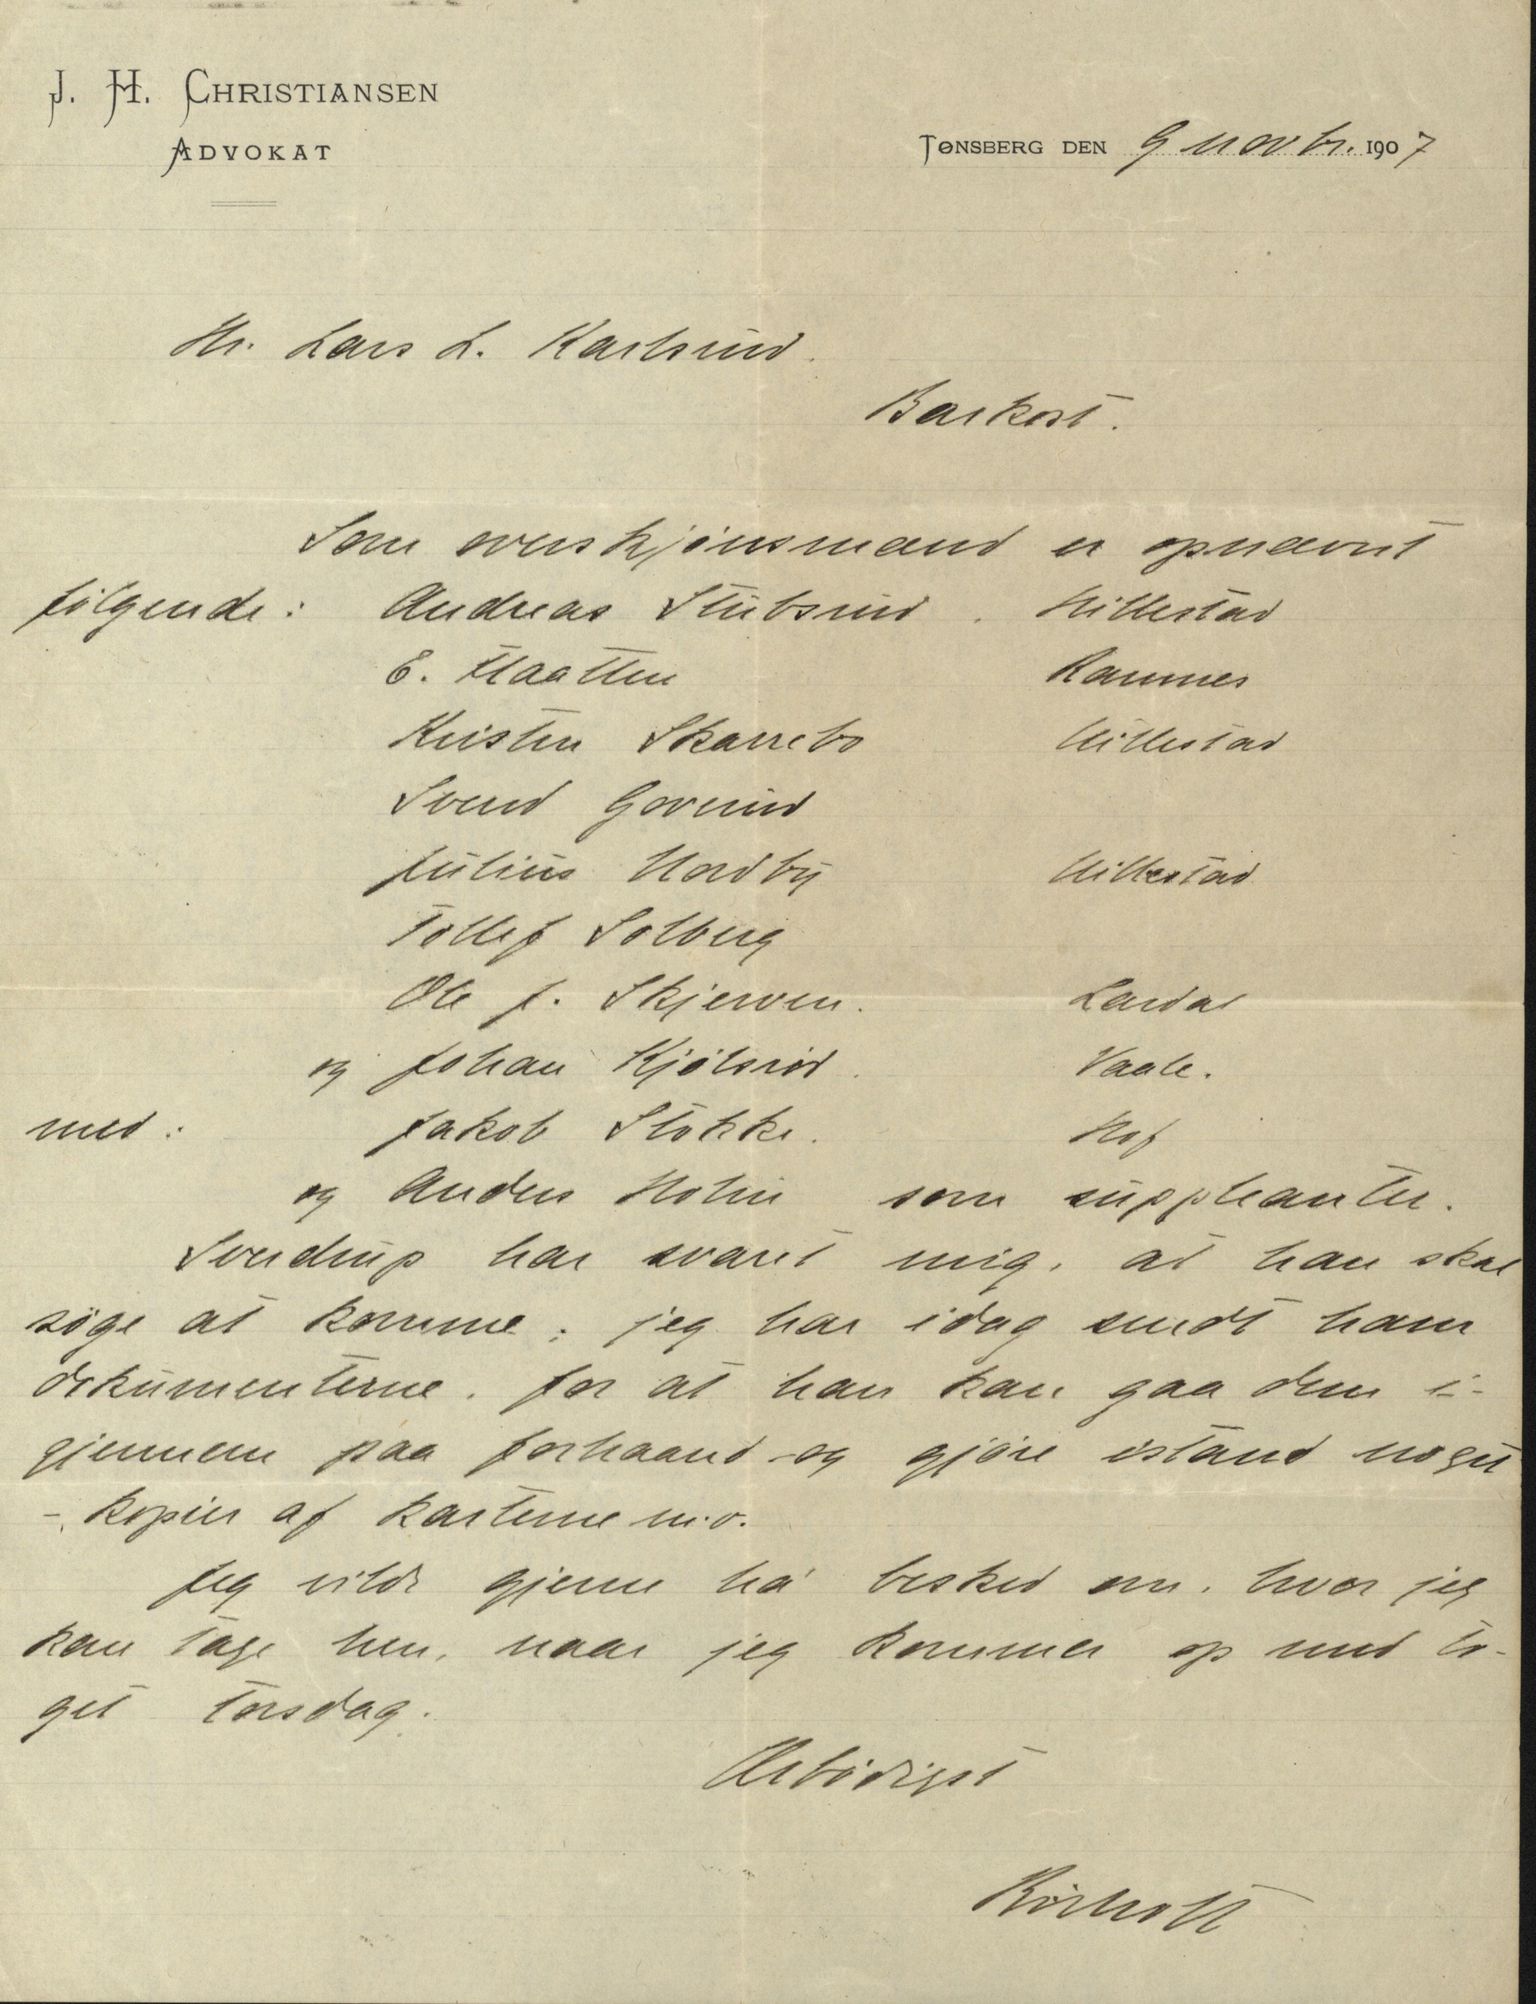 J. H. Christiansen
Advokat
Tønsberg den 9 novbr. 1907
Hr. Lars L. Karlsrud.
Barkost.
Som overskjønsmænd er opnævnt
følgende: Andreas Stubsrud. Hillestad
E. Haatten Ramnes
Kristen Skarrebo Hillestad
Svend Goverud
Julius Nordby Hillestad
Tollef Solberg
Ole J. Skjerven. Lardal
og Johan Kjølsrød. Vaale.
med: Jakob Stokke. Hof
og Anders Holm som suppleanter.
Sverdrup har svaret mig, at han skal
søge at komme; jeg har idag sendt ham
dokumenterne, for at han kan gaa dem i-
gjennem paa forhaand og gjøre istand noget
-, kopier af karterne m.v.
Jeg vilde gjerne ha besked om, hvor jeg
kan tage hen, naar jeg kommer op med to-
get torsdag.
Ærbødigst